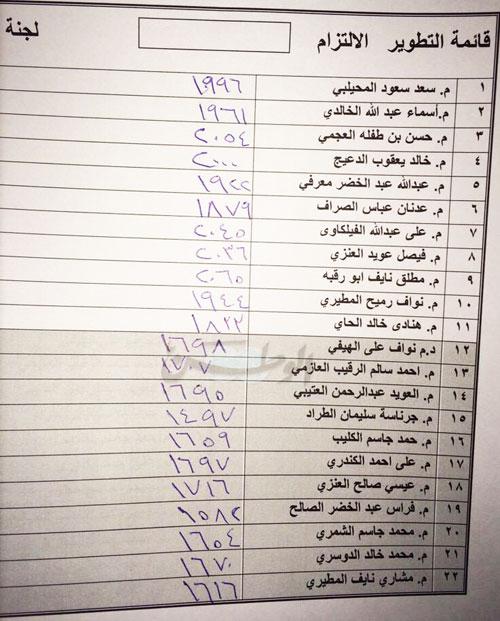 قائمة التطوير الالتزام لجنة
١ م. سعد سعود المحيلبي ١٩٩٦
٢ م.أسماء عبد الله الخالدي ١٩٦١
٣ م. حسن بن طفله العجمي ٢٠٥٤
٤ م. خالد يعقوب الدعيج ٢٠٠٠
٥ م. عبدالله عبد الخضر معرفي ١٩٢٢
٦ م. عدنان عباس الصراف ١٨٧٩
٧ م. على عبدالله الفيلكاوى ٢٠٤٥
٨ م. فيصل عويد العنزي ٢٠٣٦
٩ م. مطلق نايف ابو رقبه ٢٠٦٥
١٠ م. نواف رميح المطيري ١٩٤٤
١١ م. هنادى خالد الحاي ١٨٢٣
١٢ د.م نواف على الهيفي ١٦٩٨
١٣ م. احمد سالم الرقيب العازمي ١٧٠٧
١٤ م. العويد عبدالرحمن العتيبي ١٦٩٥
١٥ م. جرناسة سليمان الطراد ١٤٩٧
١٦ م. حمد جاسم الكليب ١٦٥٩
١٧ م. على احمد الكندري ١٦٩٧
١٨ م. عيسي صالح العنزي ١٧١٦
١٩ م. فراس عبد الخضر الصالح ١٥٨٢
٢٠ م. محمد جاسم الشمري ١٦٥٤
٢١ م. محمد خالد الدوسري ١٦٧٠
٢٢ م. مشاري نايف المطيري ١٦١٦